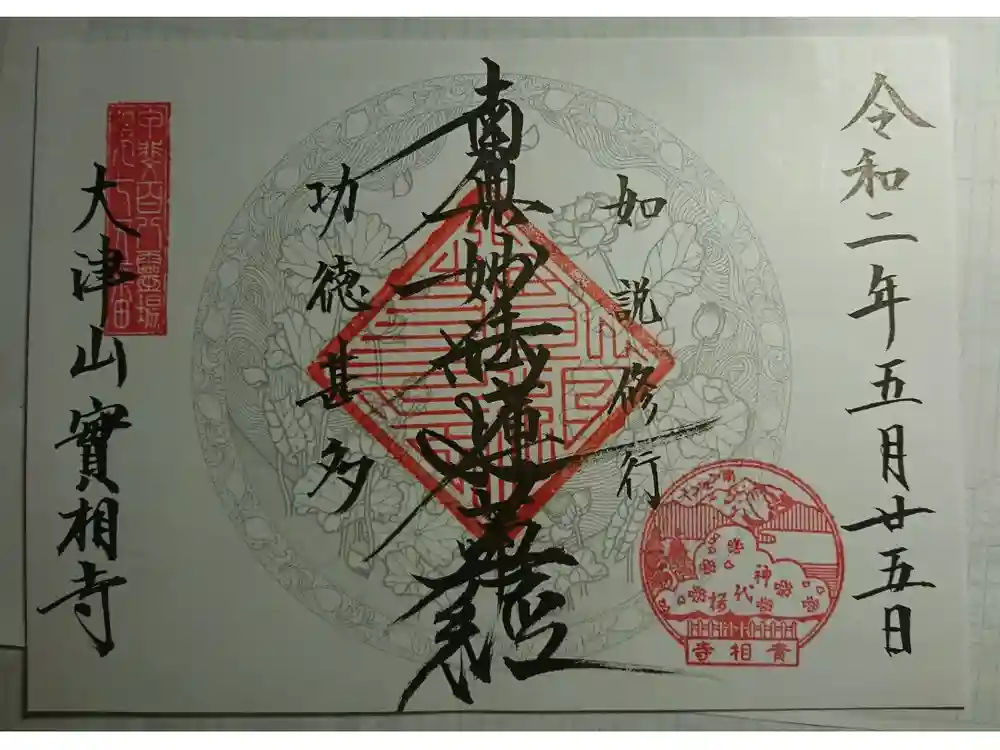 令和二年五月廿五日
如説修行
南無妙法蓮華経
功徳甚多
大津山實相寺
甲斐百八霊場
神代桜
實相寺